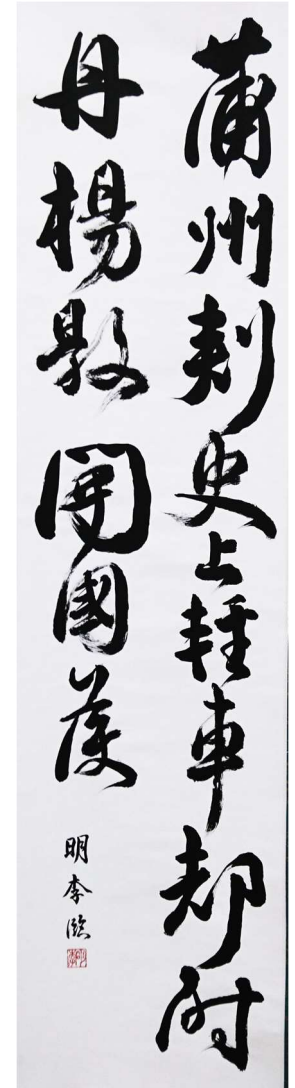 蒲州刺史上輕車都尉
丹楊縣開國侯
明李臨